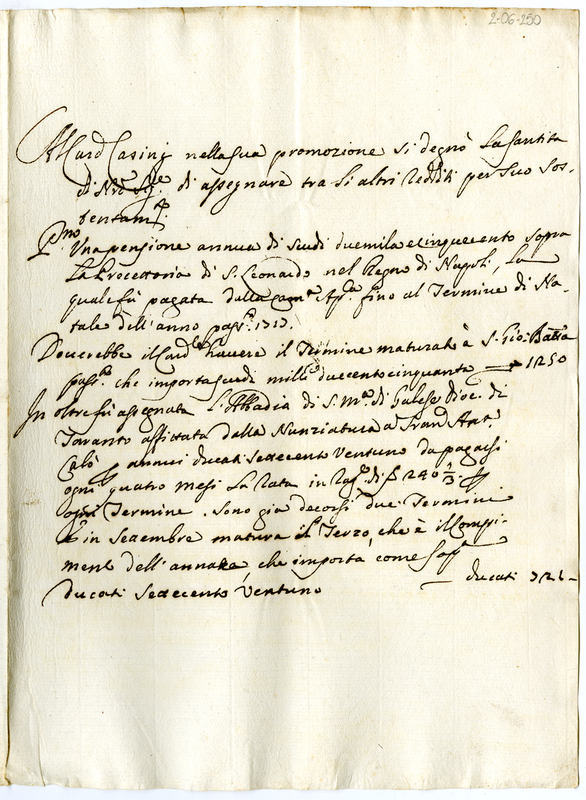 2-06-250
Al Card Casinj nella sua promozione si degnò La Santità
di Nro Sigre di assegnare tra li altri redditi per suo sos-
tentamto
Pmo Una pensione annua di scudi duemila e cinquecento sopra
La Precettoria di S. Leonardo nel Regno di Napoli, la
quale fù pagata dalla Camª Apª fino al Termine di Na-
tale dell'anno passº 1713.
Douerebbe il Cardle hauere il Termine maturato à S. Gio: Batta
passº che importa scudi mille duecento cinquanta — 1250
In oltre fù assegnata L'Abbadia di S. Mª di Galeso Dioc. di
Taranto affittata dalla Nunziatura a Fran Ant.
Calò annui ducati Settecento Ventuno da pagarsi
ogni quattro mesi La rata in ragª di 240 1/3
ogni Termine. Sono già decorsi due Termini
in Settembre matura il Terzo, che è il Compi-
mento dell'annata, che importa come sopª
ducati Settecento Ventuno — ducati 721-